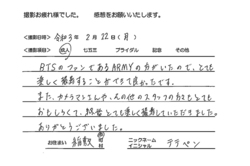 撮影お疲れ様でした。 感想をお願いいたします。
<撮影日時> 令和3年 2月22日(月)
<撮影項目> 成人 七五三 ブライダル 記念 その他
BTSのファンであるARMYの方がいたので、とても
楽しく撮影することができて良かったです。
また、カメラマンさんや、その他のスタッフの方もとても
おもしろくて、終始とても楽しく撮影していただきました。
ありがとうございました。
お住まい 稲敷 ニックネーム イニシャル テテペン